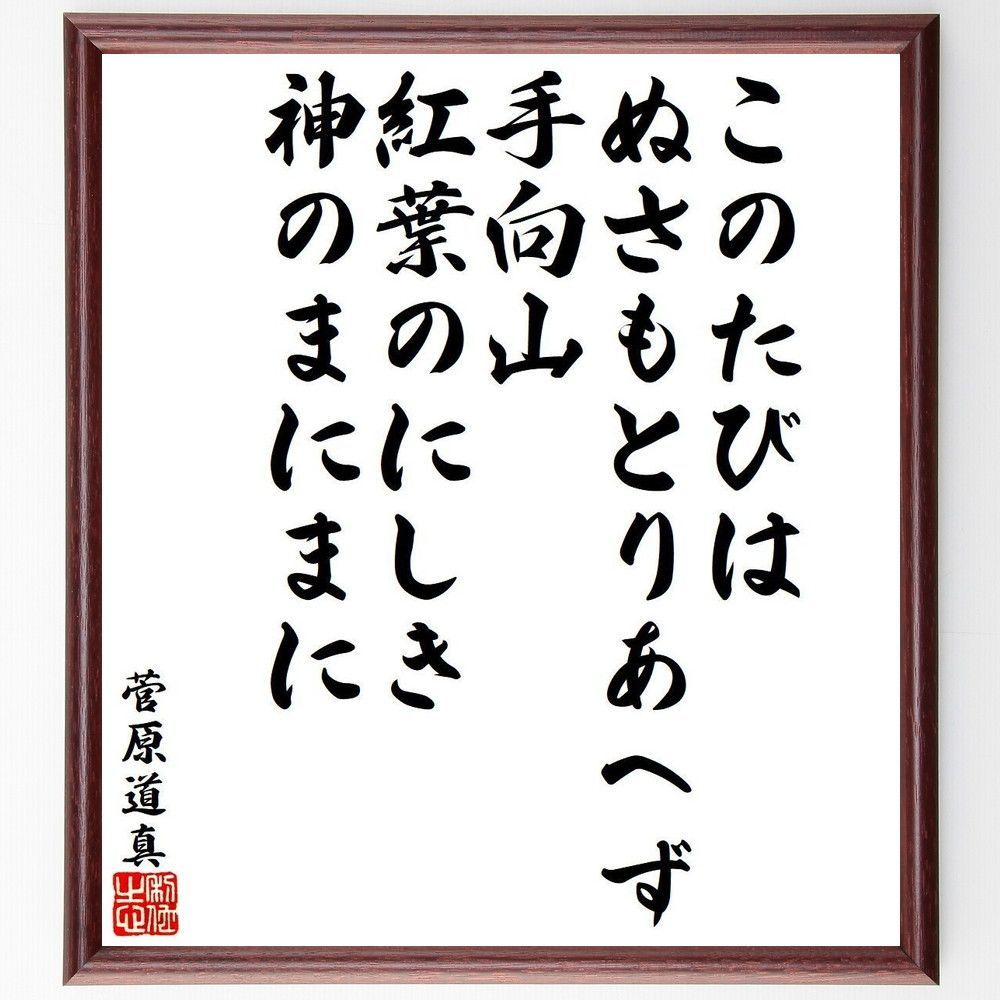 このたびは
ぬさもとりあへず
手向山
紅葉のにしき
神のまにまに
菅原道真